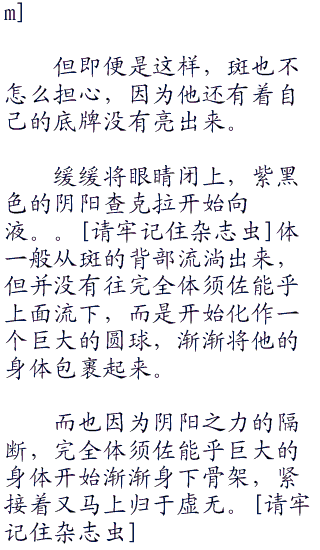 m]
但即便是这样，斑也不
怎么担心，因为他还有着自
己的底牌没有亮出来。
缓缓将眼睛闭上，紫黑
色的阴阳查克拉开始向
液。。[请牢记住杂志虫]体
一般从斑的背部流淌出来，
但并没有往完全体须佐能乎
上面流下，而是开始化作一
个巨大的圆球，渐渐将他的
身体包裹起来。
而也因为阴阳之力的隔
断，完全体须佐能乎巨大的
身体开始渐渐身下骨架，紧
接着又马上归于虚无。[请牢
记住杂志虫]